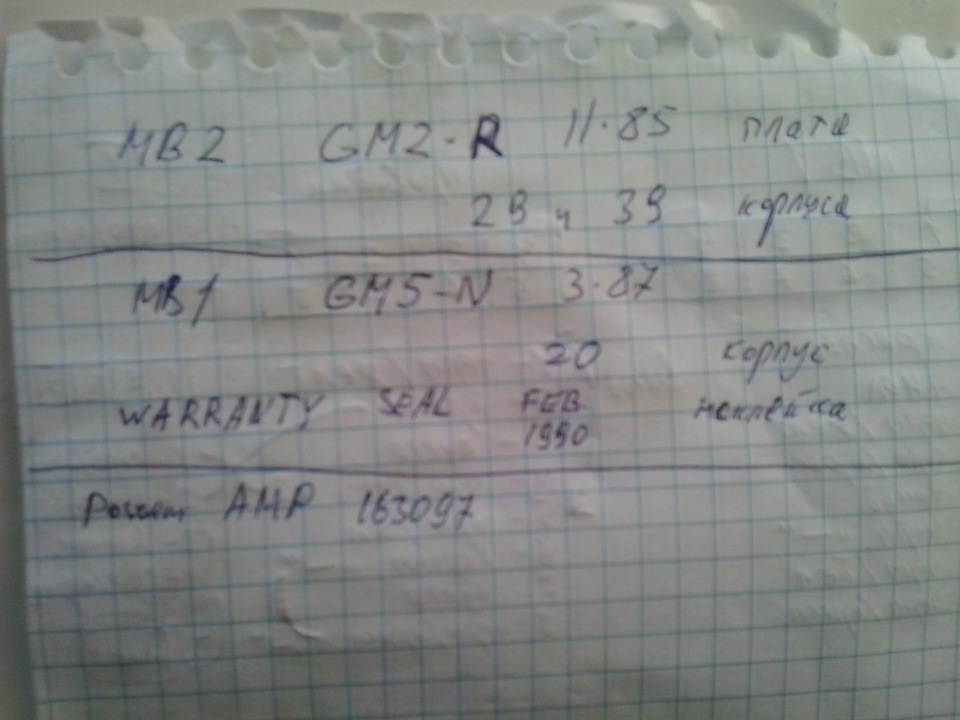 MB2 GM2-R 11·85 плата
29 и 39 корпуса
MB1 GM5-N 3·87
20 корпус
WARRANTY SEAL FEB. наклейка
1990
Разъем AMP 163097